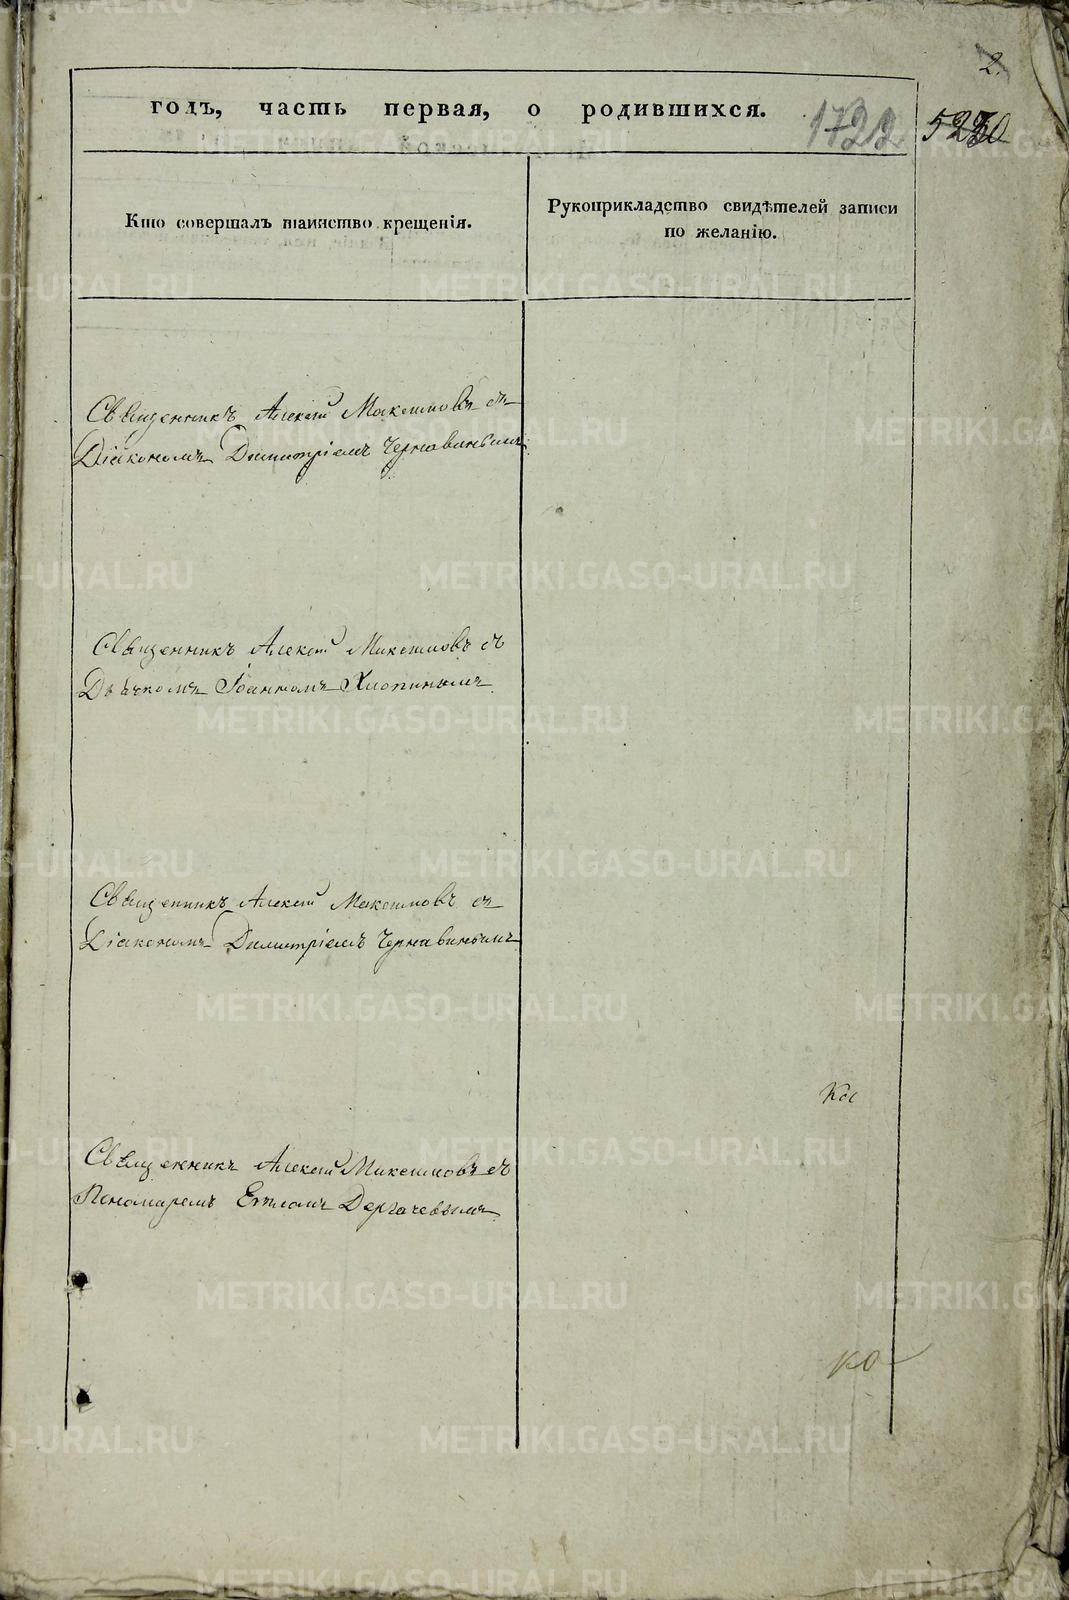 2.
годъ, часть первая, о родившихся. 1722
Кто совершалъ таинство крещенія.
Рукоприкладство свидѣтелей записи
по желанію.
Священникъ Алексій Максимовъ съ
Діакономъ Димитріемъ Чернавинымъ
Священникъ Алексій Максимовъ съ
Дьячкомъ Іоанномъ Хлопинымъ
Священникъ Алексій Максимовъ съ
Діакономъ Димитріемъ Чернавинымъ
Кос
Священникъ Алексій Максимовъ съ
Пономаремъ Дергачевымъ
ко
METRIKI.GASO-URAL.RU